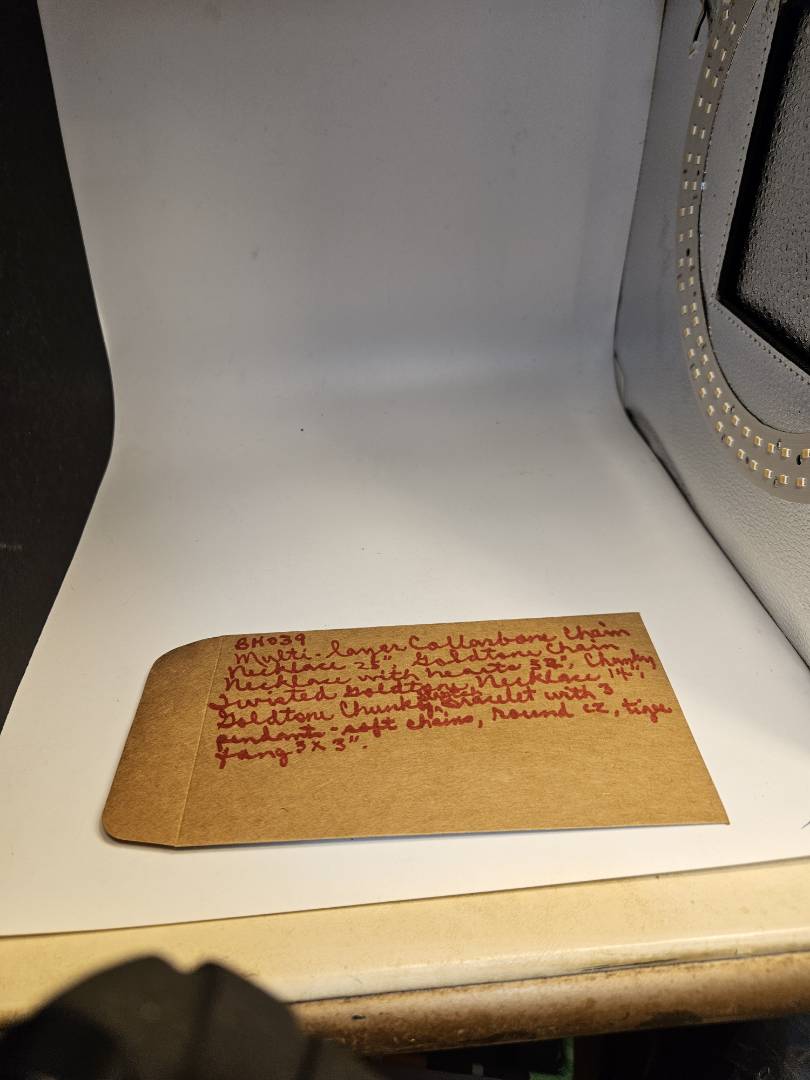 BH039
Multi-layer Collarbone Chain
Necklace 25" Goldtone Chain
Necklace with hearts 32", Chunky
Twisted Goldtone Necklace 14",
Goldtone Chunky Bracelet with 3
pendants - soft chains, round cz, tiger
fang 3 x 3".